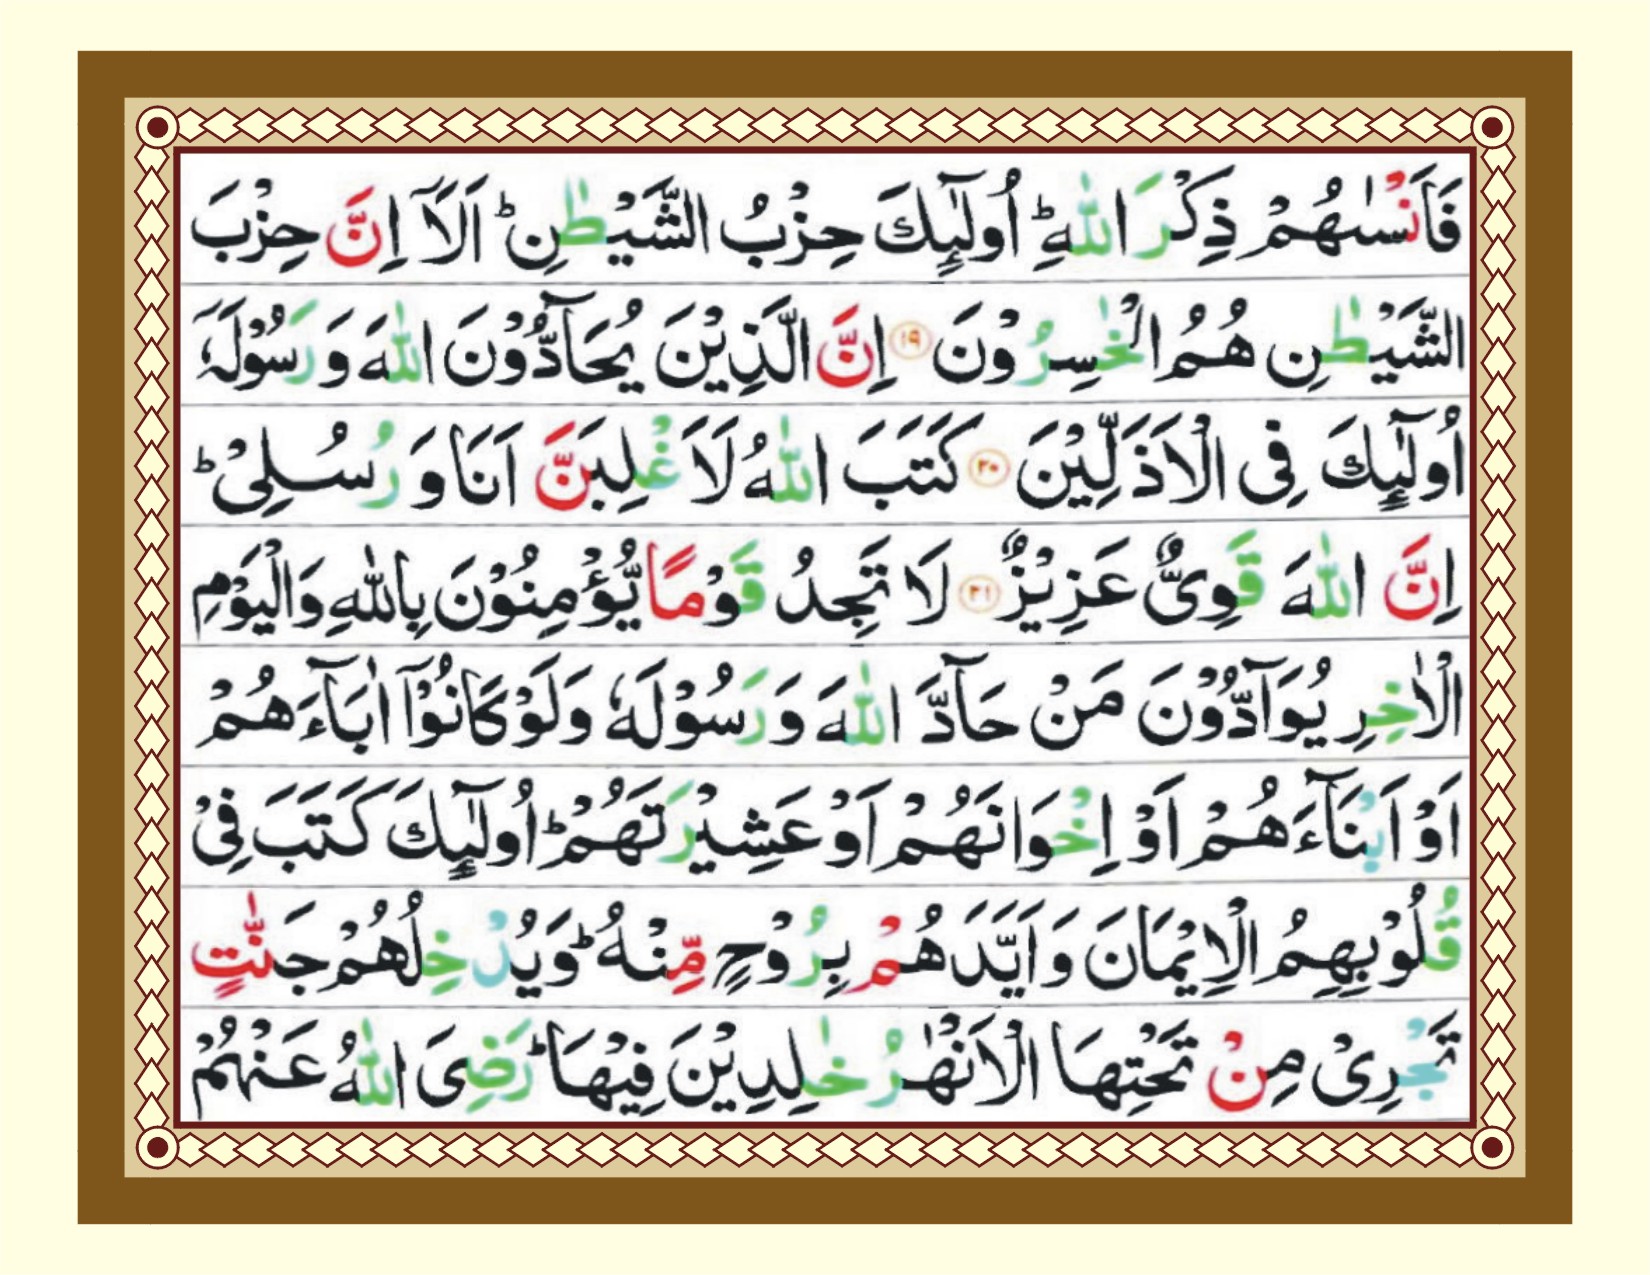 فَاَنْسٰىهُمْ ذِكْرَ اللّٰهِ ؕ اُولٰٓئِكَ حِزْبُ الشَّيْطٰنِ ؕ اَلَاۤ اِنَّ حِزْبَ
الشَّيْطٰنِ هُمُ الْخٰسِرُوْنَ ۱۹ اِنَّ الَّذِيْنَ يُحَآدُّوْنَ اللّٰهَ وَ رَسُوْلَهٗۤ
اُولٰٓئِكَ فِى الْاَذَلِّيْنَ ۲۰ كَتَبَ اللّٰهُ لَاَغْلِبَنَّ اَنَا وَ رُسُلِىْ ؕ
اِنَّ اللّٰهَ قَوِىٌّ عَزِيْزٌ ۲۱ لَا تَجِدُ قَوْمًا يُّؤْمِنُوْنَ بِاللّٰهِ وَالْيَوْمِ
الْاٰخِرِ يُوَآدُّوْنَ مَنْ حَآدَّ اللّٰهَ وَ رَسُوْلَهٗ وَلَوْ كَانُوْۤا اٰبَآءَهُمْ
اَوْ اَبْنَآءَهُمْ اَوْ اِخْوَانَهُمْ اَوْ عَشِيْرَتَهُمْ ؕ اُولٰٓئِكَ كَتَبَ فِىْ
قُلُوْبِهِمُ الْاِيْمَانَ وَ اَيَّدَهُمْ بِرُوْحٍ مِّنْهُ ؕ وَيُدْخِلُهُمْ جَنّٰتٍ
تَجْرِىْ مِنْ تَحْتِهَا الْاَنْهٰرُ خٰلِدِيْنَ فِيْهَا ؕ رَضِىَ اللّٰهُ عَنْهُمْ